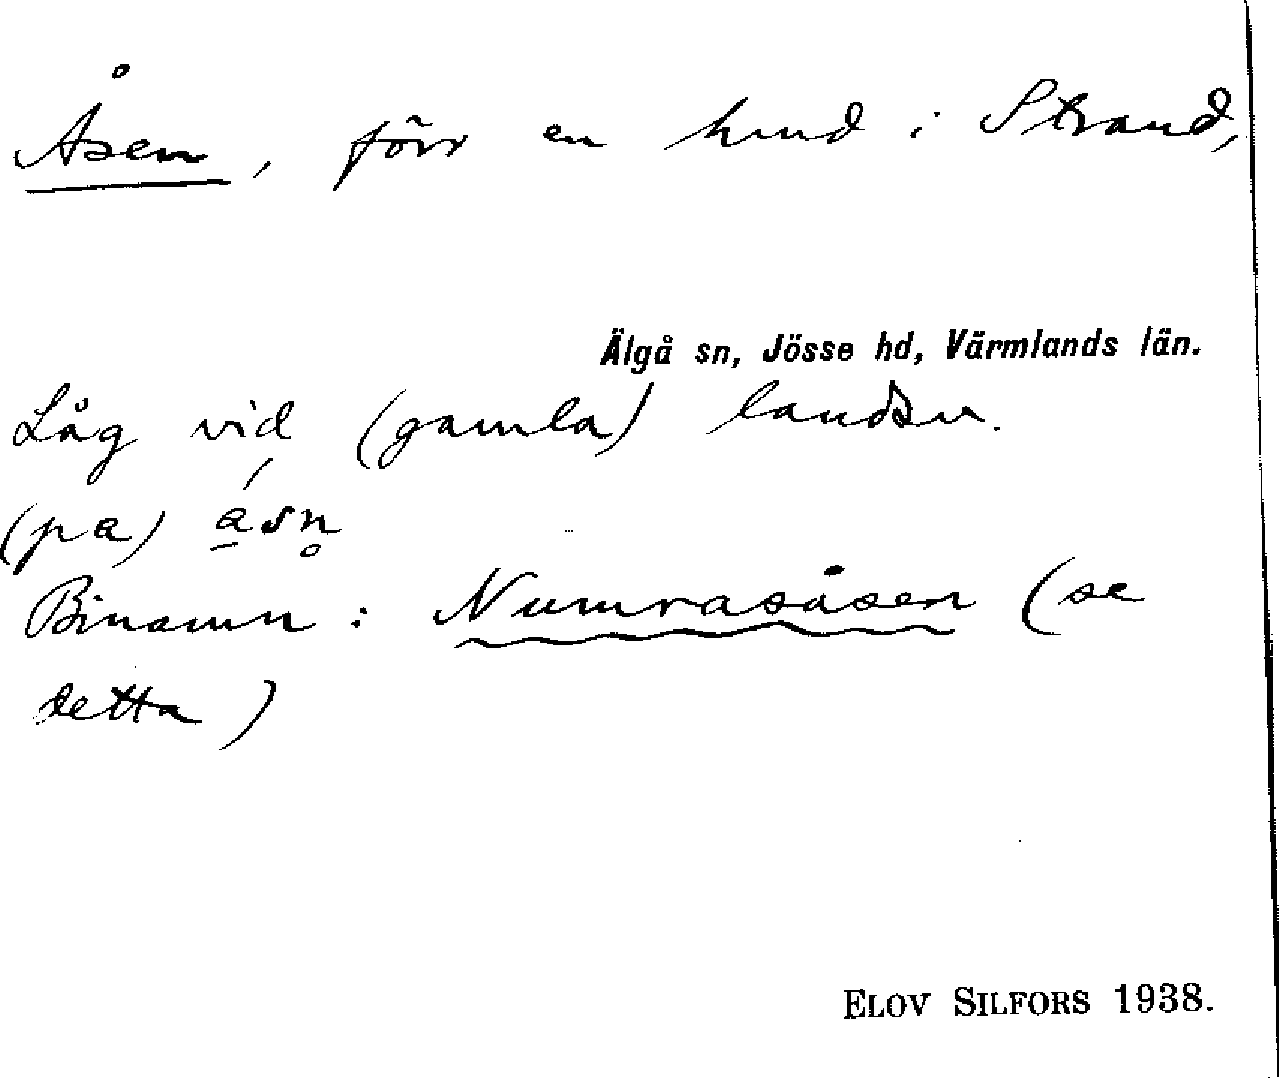 Åsen, förr en hmd i Strand,
Älgå sn, Jösse hd, Värmlands län.
Låg vid (gamla) landsv.
(pa) ásn̥
Binamn: Numrasåsen (se
detta)
ELOV SILFORS 1938.